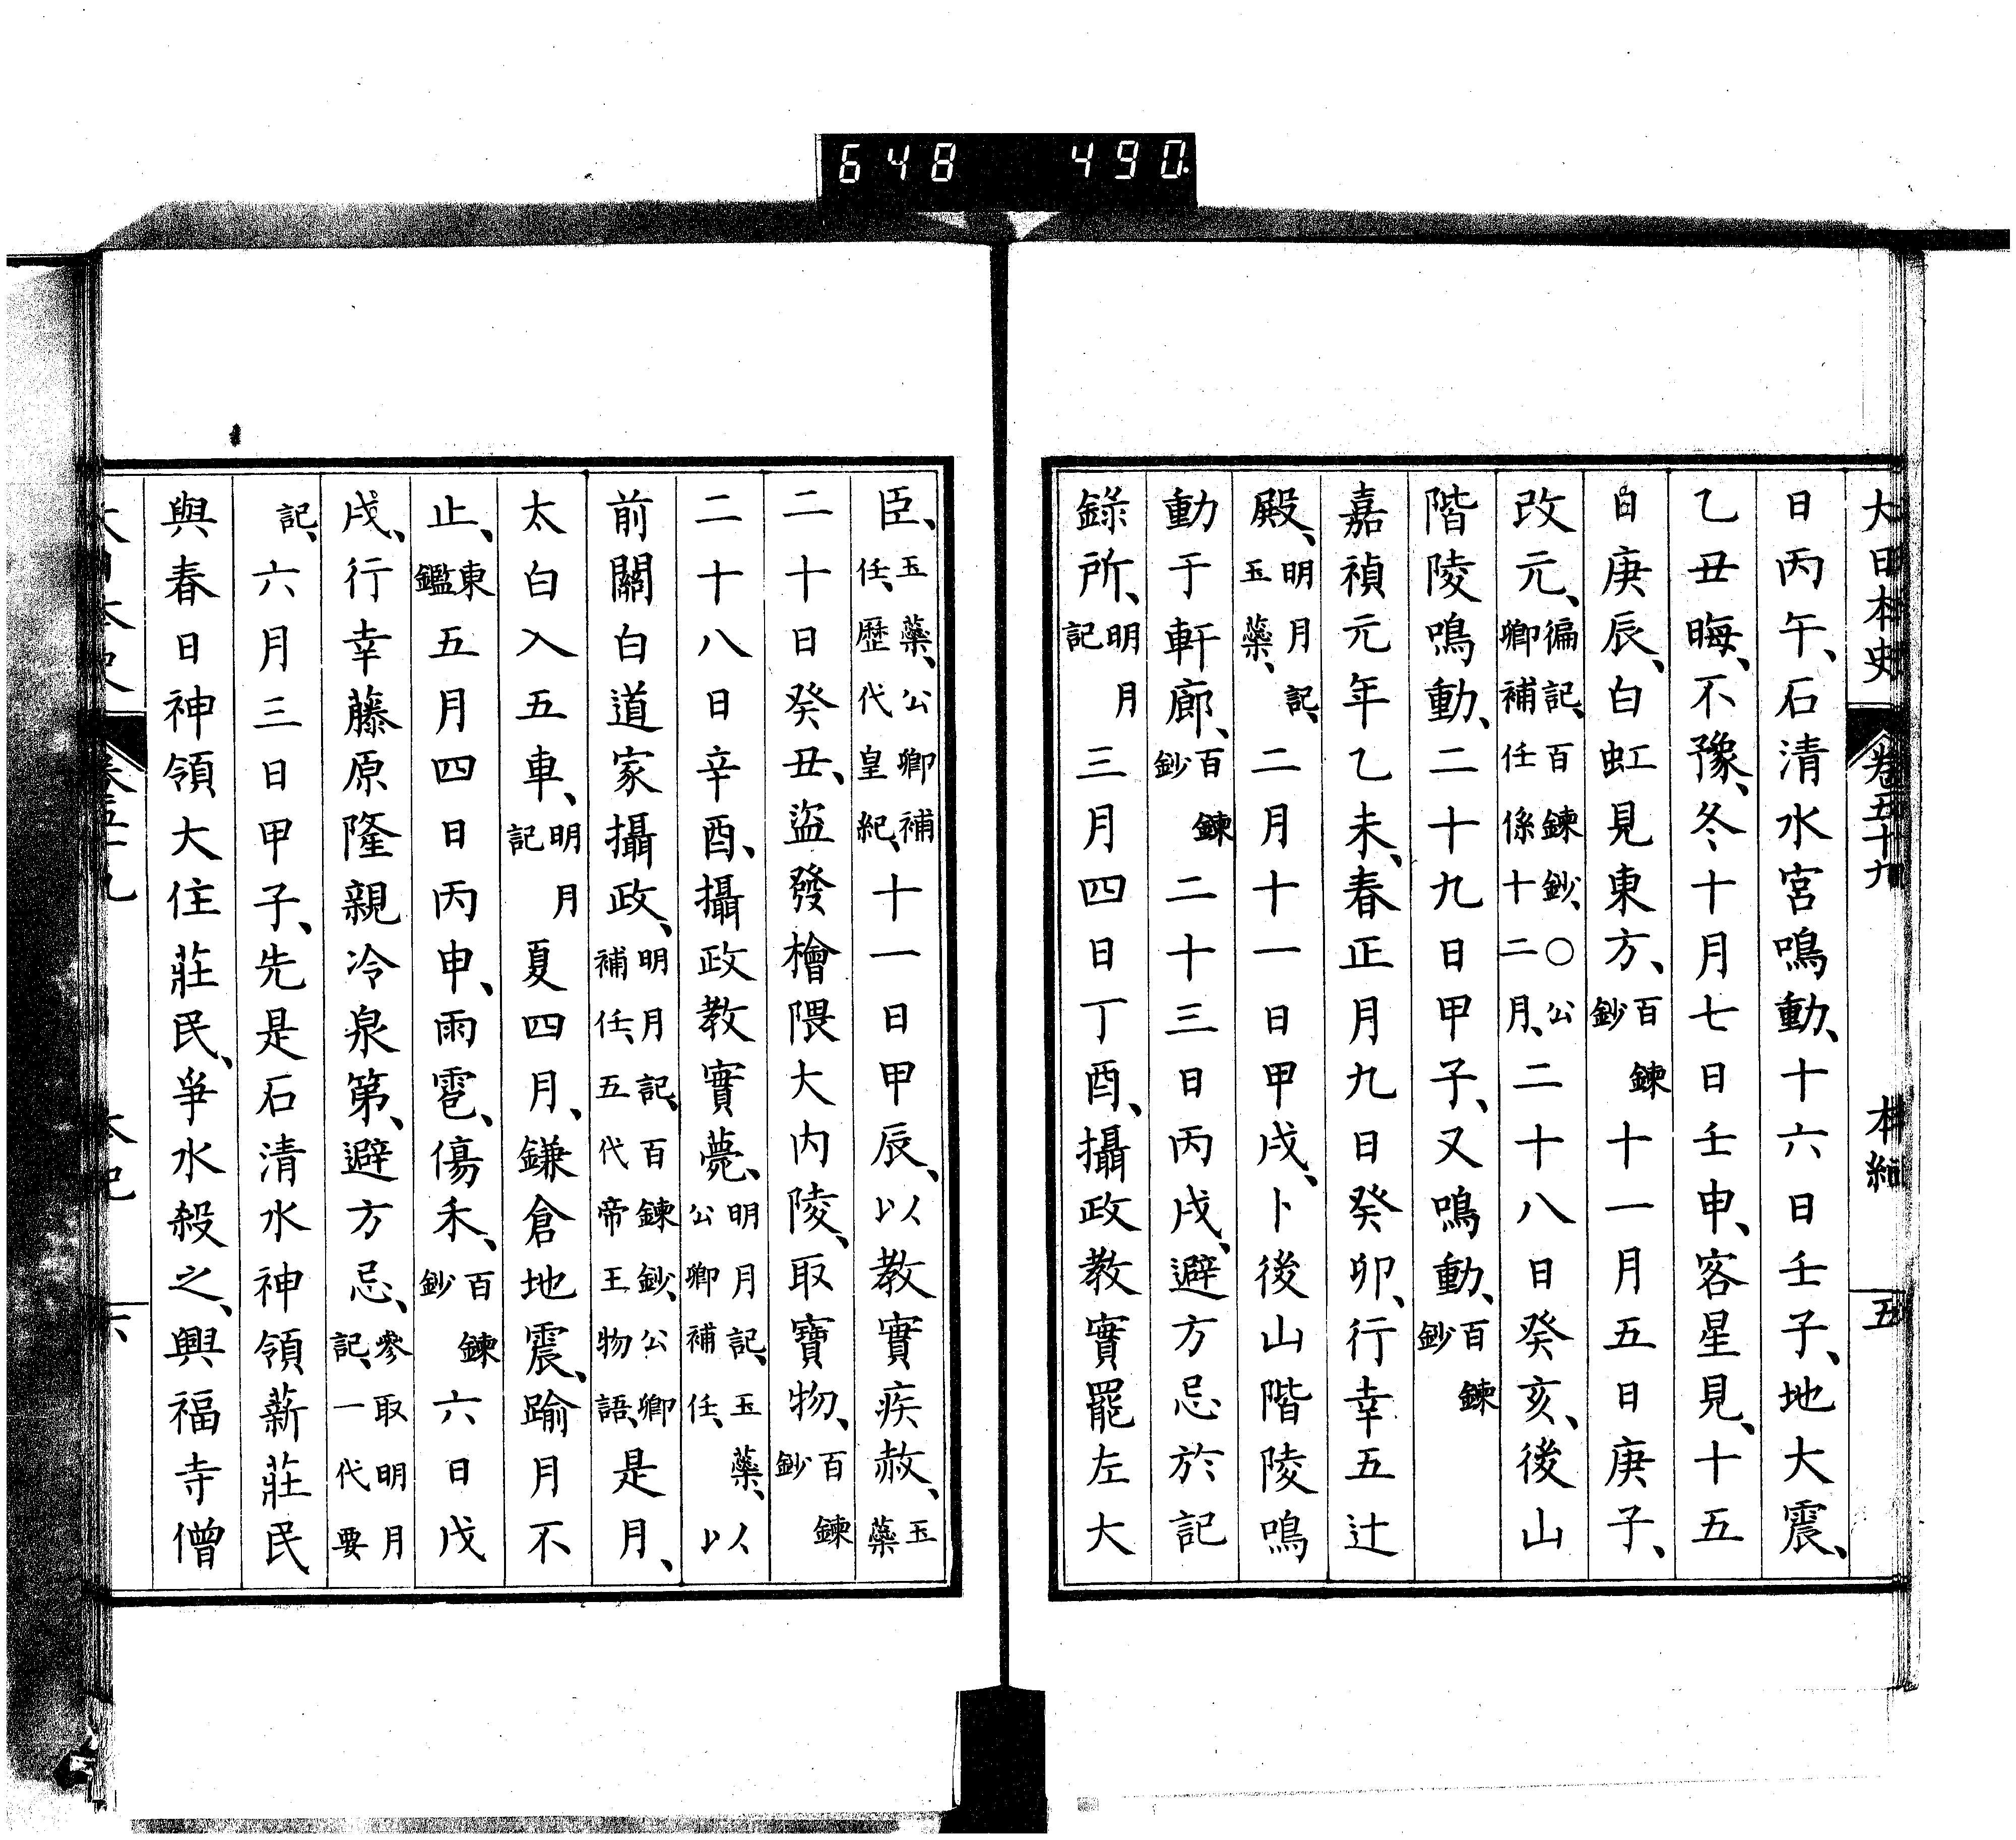 648 490
大日本史 卷五十九 本紀 五
日丙午、石清水宮鳴動、十六日壬子、地大震、
乙丑晦、不豫、冬十月七日壬申、客星見、十五
日庚辰、白虹見東方、百鍊鈔十一月五日庚子、
改元、徧記、百鍊鈔、○公卿補任係十二月、二十八日癸亥、後山
階陵鳴動、二十九日甲子、又鳴動、百鍊鈔
嘉禎元年乙未、春正月九日癸卯、行幸五辻
殿、明月記、玉蘂、二月十一日甲戌、卜後山階陵鳴
動于軒廊、百鍊鈔二十三日丙戌、避方忌於記
錄所、明月記三月四日丁酉、攝政教實罷左大
臣、玉蘂、公卿補任、歷代皇紀、十一日甲辰、以教實疾赦、玉蘂
二十日癸丑、盜發檜隈大内陵、取寶物、百鍊鈔
二十八日辛酉、攝政教實薨、明月記、玉蘂、公卿補任、以
前關白道家攝政、明月記、百鍊鈔、公卿補任、五代帝王物語、是月、
太白入五車、明月記夏四月、鎌倉地震、踰月不
止、東鑑五月四日丙申、雨雹、傷禾、百鍊鈔六日戊
戌、行幸藤原隆親冷泉第、避方忌、參取明月記、一代要
記、六月三日甲子、先是石清水神領薪莊民
與春日神領大住莊民、爭水殺之、興福寺僧